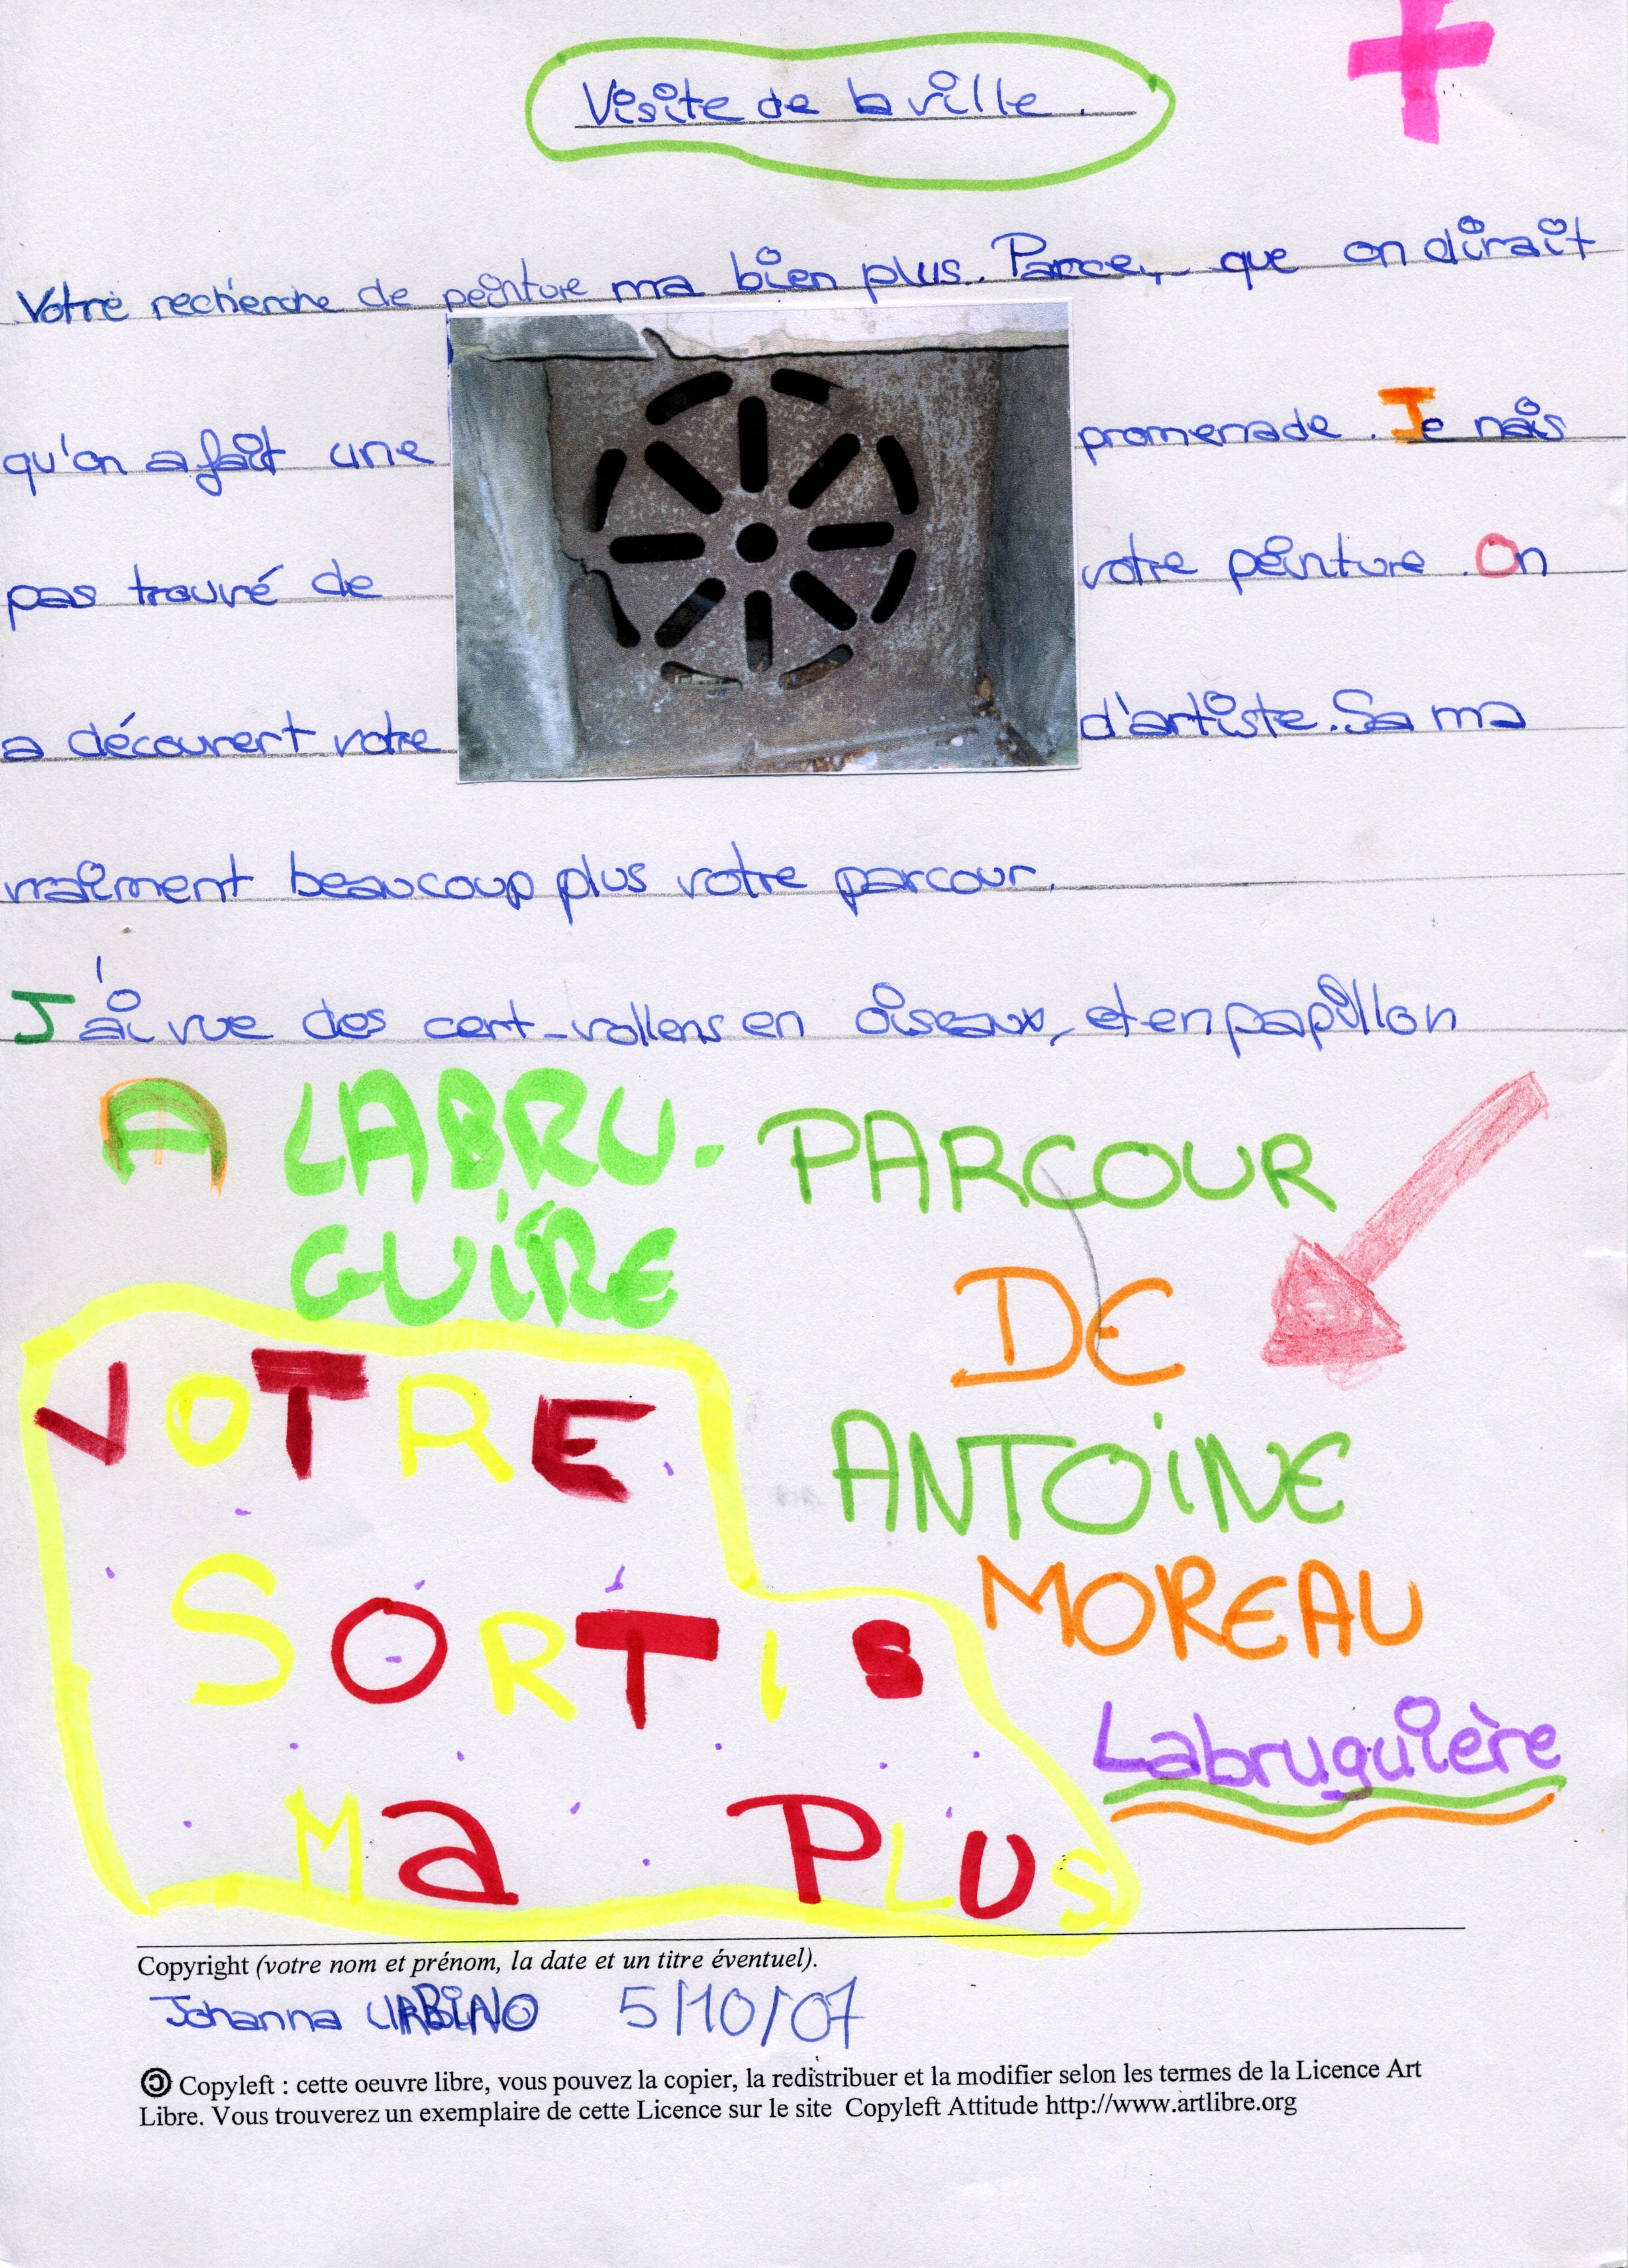 Visite de la ville.
Votre recherche de peinture ma bien plus. Parce, que on dirait
qu'on a fait une promenade. Je nais
pas trouvé de votre peinture. On
a découvert votre d'artiste. Sa ma
vraiment beaucoup plus votre parcour.
J'ai vue des cert-vollens en oiseaux, et en papillon
A LABRU-
GUIÈRE
PARCOUR
DE
ANTOINE
MOREAU
Labruguière
VOTRE
SORTIS
Ma PLUS
Copyright (votre nom et prénom, la date et un titre éventuel).
Johanna URBINO 5/10/07
Copyleft : cette oeuvre libre, vous pouvez la copier, la redistribuer et la modifier selon les termes de la Licence Art
Libre. Vous trouverez un exemplaire de cette Licence sur le site Copyleft Attitude http://www.artlibre.org